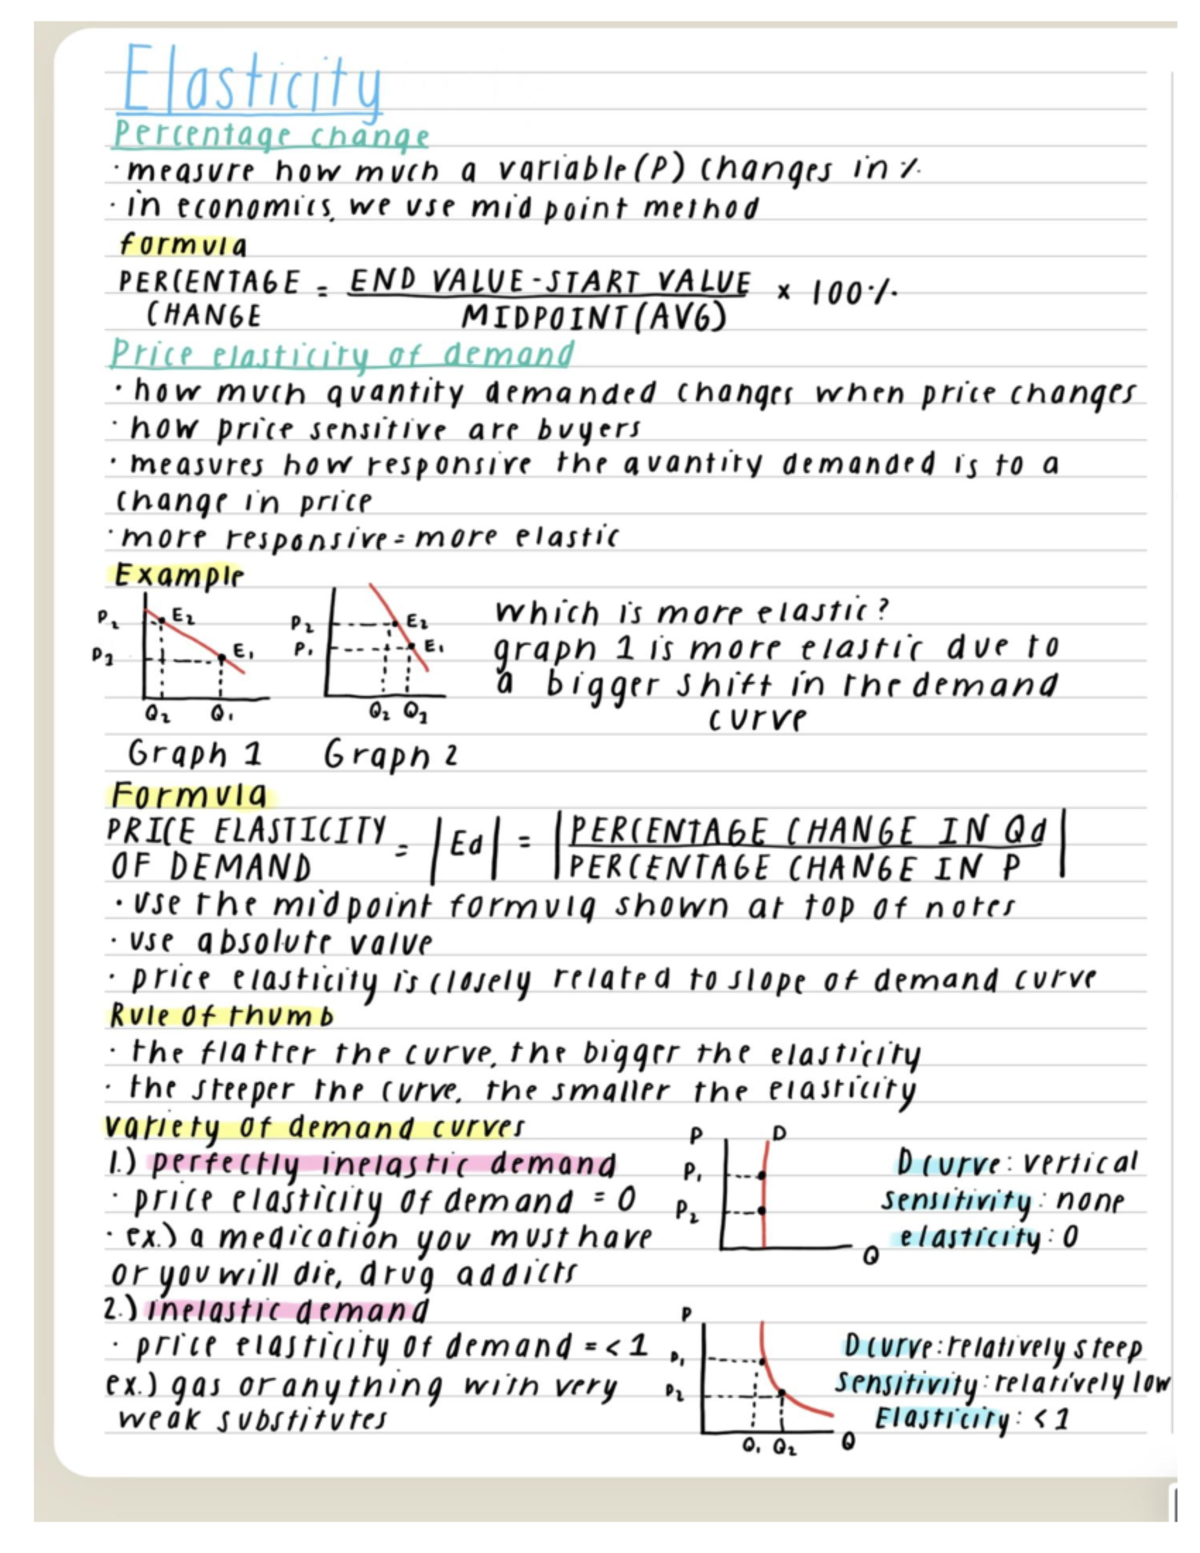 Elasticity
Percentage change
· measure how much a variable (P) changes in %
· in economics, we use mid point method
formula
PERCENTAGE CHANGE = END VALUE - START VALUE / MIDPOINT (AVG) × 100%
Price elasticity of demand
· how much quantity demanded changes when price changes
· how price sensitive are buyers
· measures how responsive the quantity demanded is to a
change in price
· more responsive = more elastic
Example
P2 E2
P1 E1
Q2 Q1
Graph 1
P2 E2
P1 E1
Q2 Q1
Graph 2
which is more elastic?
graph 1 is more elastic due to
a bigger shift in the demand
curve
Formula
PRICE ELASTICITY OF DEMAND = |Ed| = |PERCENTAGE CHANGE IN Qd / PERCENTAGE CHANGE IN P|
· use the midpoint formula shown at top of notes
· use absolute value
· price elasticity is closely related to slope of demand curve
Rule of thumb
· the flatter the curve, the bigger the elasticity
· the steeper the curve, the smaller the elasticity
variety of demand curves
1.) perfectly inelastic demand
· price elasticity of demand = 0
· ex.) a medication you must have
or you will die, drug addicts
P D
P1
P2
Q
D curve: vertical
sensitivity: none
elasticity: 0
2.) inelastic demand
· price elasticity of demand = < 1
ex.) gas or anything with very
weak substitutes
P
P1
P2
Q1 Q2 Q
D curve: relatively steep
sensitivity: relatively low
Elasticity: < 1